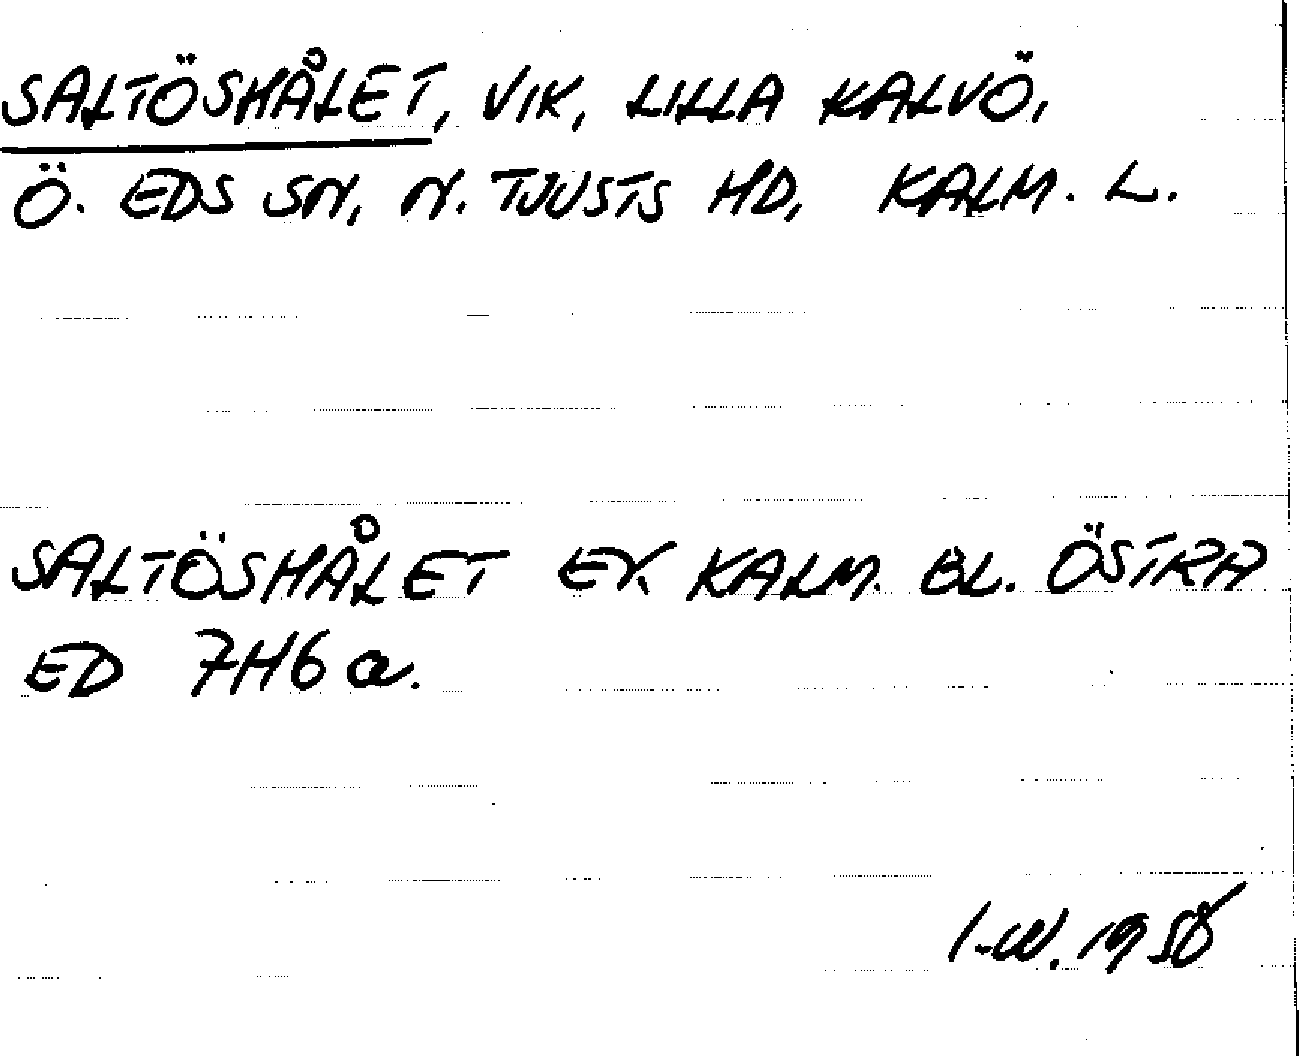 SALTÖSHÅLET, VIK, LILLA KALVÖ,
Ö. EDS SN, N. TJUSTS HD, KALM. L.
SALTÖSHÅLET EK. KALM. BL. ÖSTRA
ED 7H6a.
1958